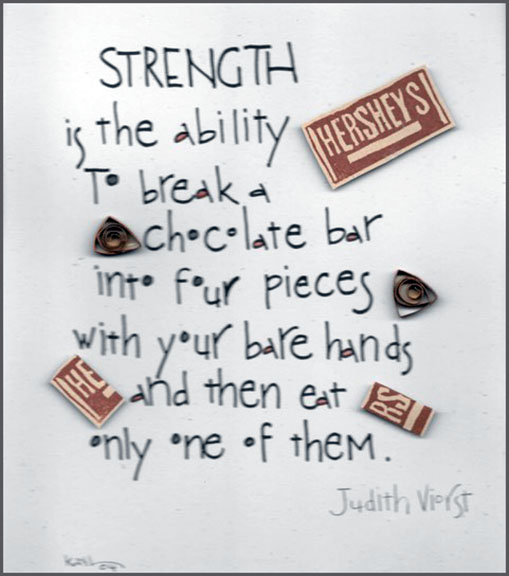 STRENGTH
is the ability
HERSHEYS
To break a
chocolate bar
into four pieces
with your bare hands
HE
and then eat
RS
only one of them.
Judith Viorst